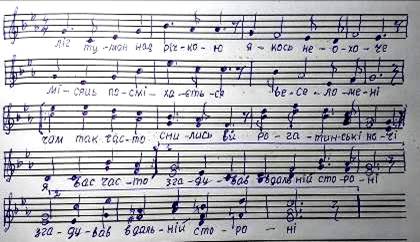 ліг ту-ман над річ-ко-ю я-кось не-о-хо-че
мі-сяць по-смі-ха-єть-ся ве-се-ло ме-ні
там так час-то сни-лись вій ро-га-тин-ські но-чі
Я вас час-то зга-ду-вав вдаль-ній сто-ро-ні
зга-ду-вав вдаль-ній сто-ро-ні